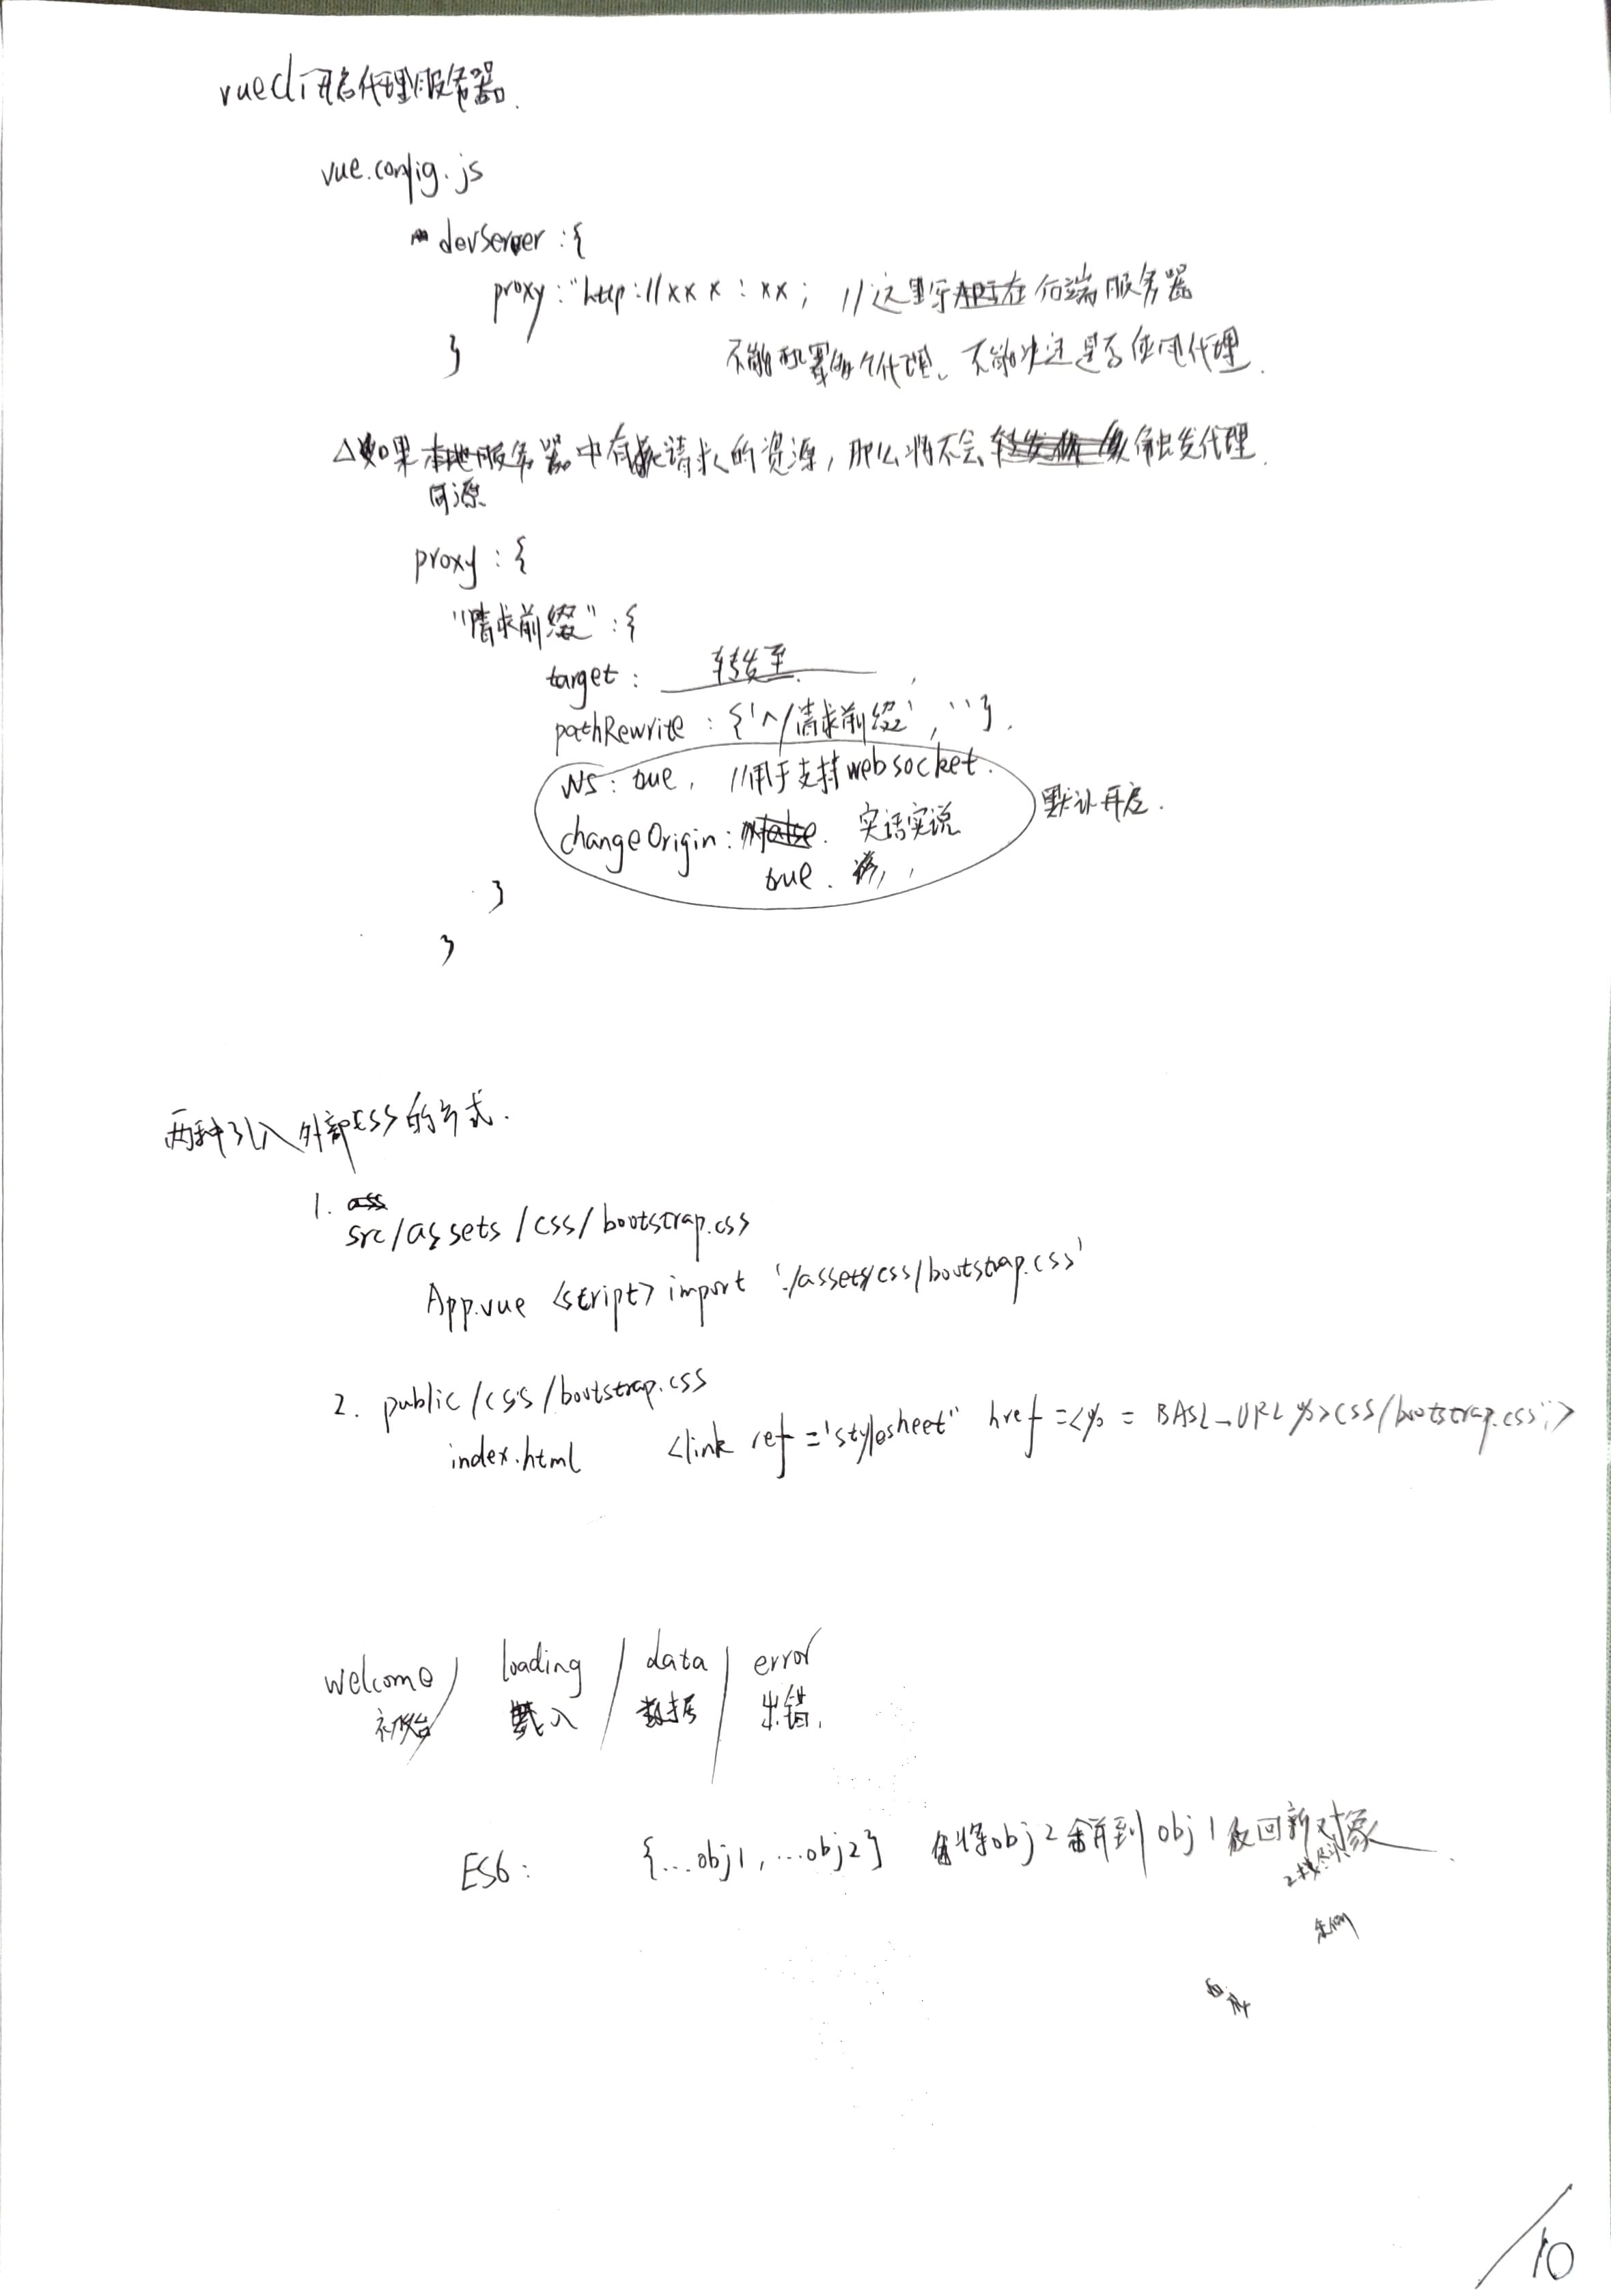 vuecli开启代理服务器.
vue.config.js
devServer:{
proxy:"http://xxx:xx; //这里写在后端服务器
}
不能配置多个代理、不能决定是否使用代理.
△如果服务器中有请求的资源,那么将不会触发代理.
同源
proxy:{
"请求前缀":{
target: 转发至,
pathRewrite:{'^/请求前缀',''}.
ws:true, //用于支持websocket.
changeOrigin: 实话实说
默认开启.
true.
}
}
两种引入外部CSS的方式.
1.
src/assets/css/bootstrap.css
App.vue <script> import './assets/css/bootstrap.css'
2. public/css/bootstrap.css
index.html <link ref='stylesheet" href=<%= BASE_URL %>css/bootstrap.css">
welcome / loading / data / error
初始 载入 数据 出错.
ES6: {...obj1,...obj2} 会将obj2合并到obj1返回新对象.
/10